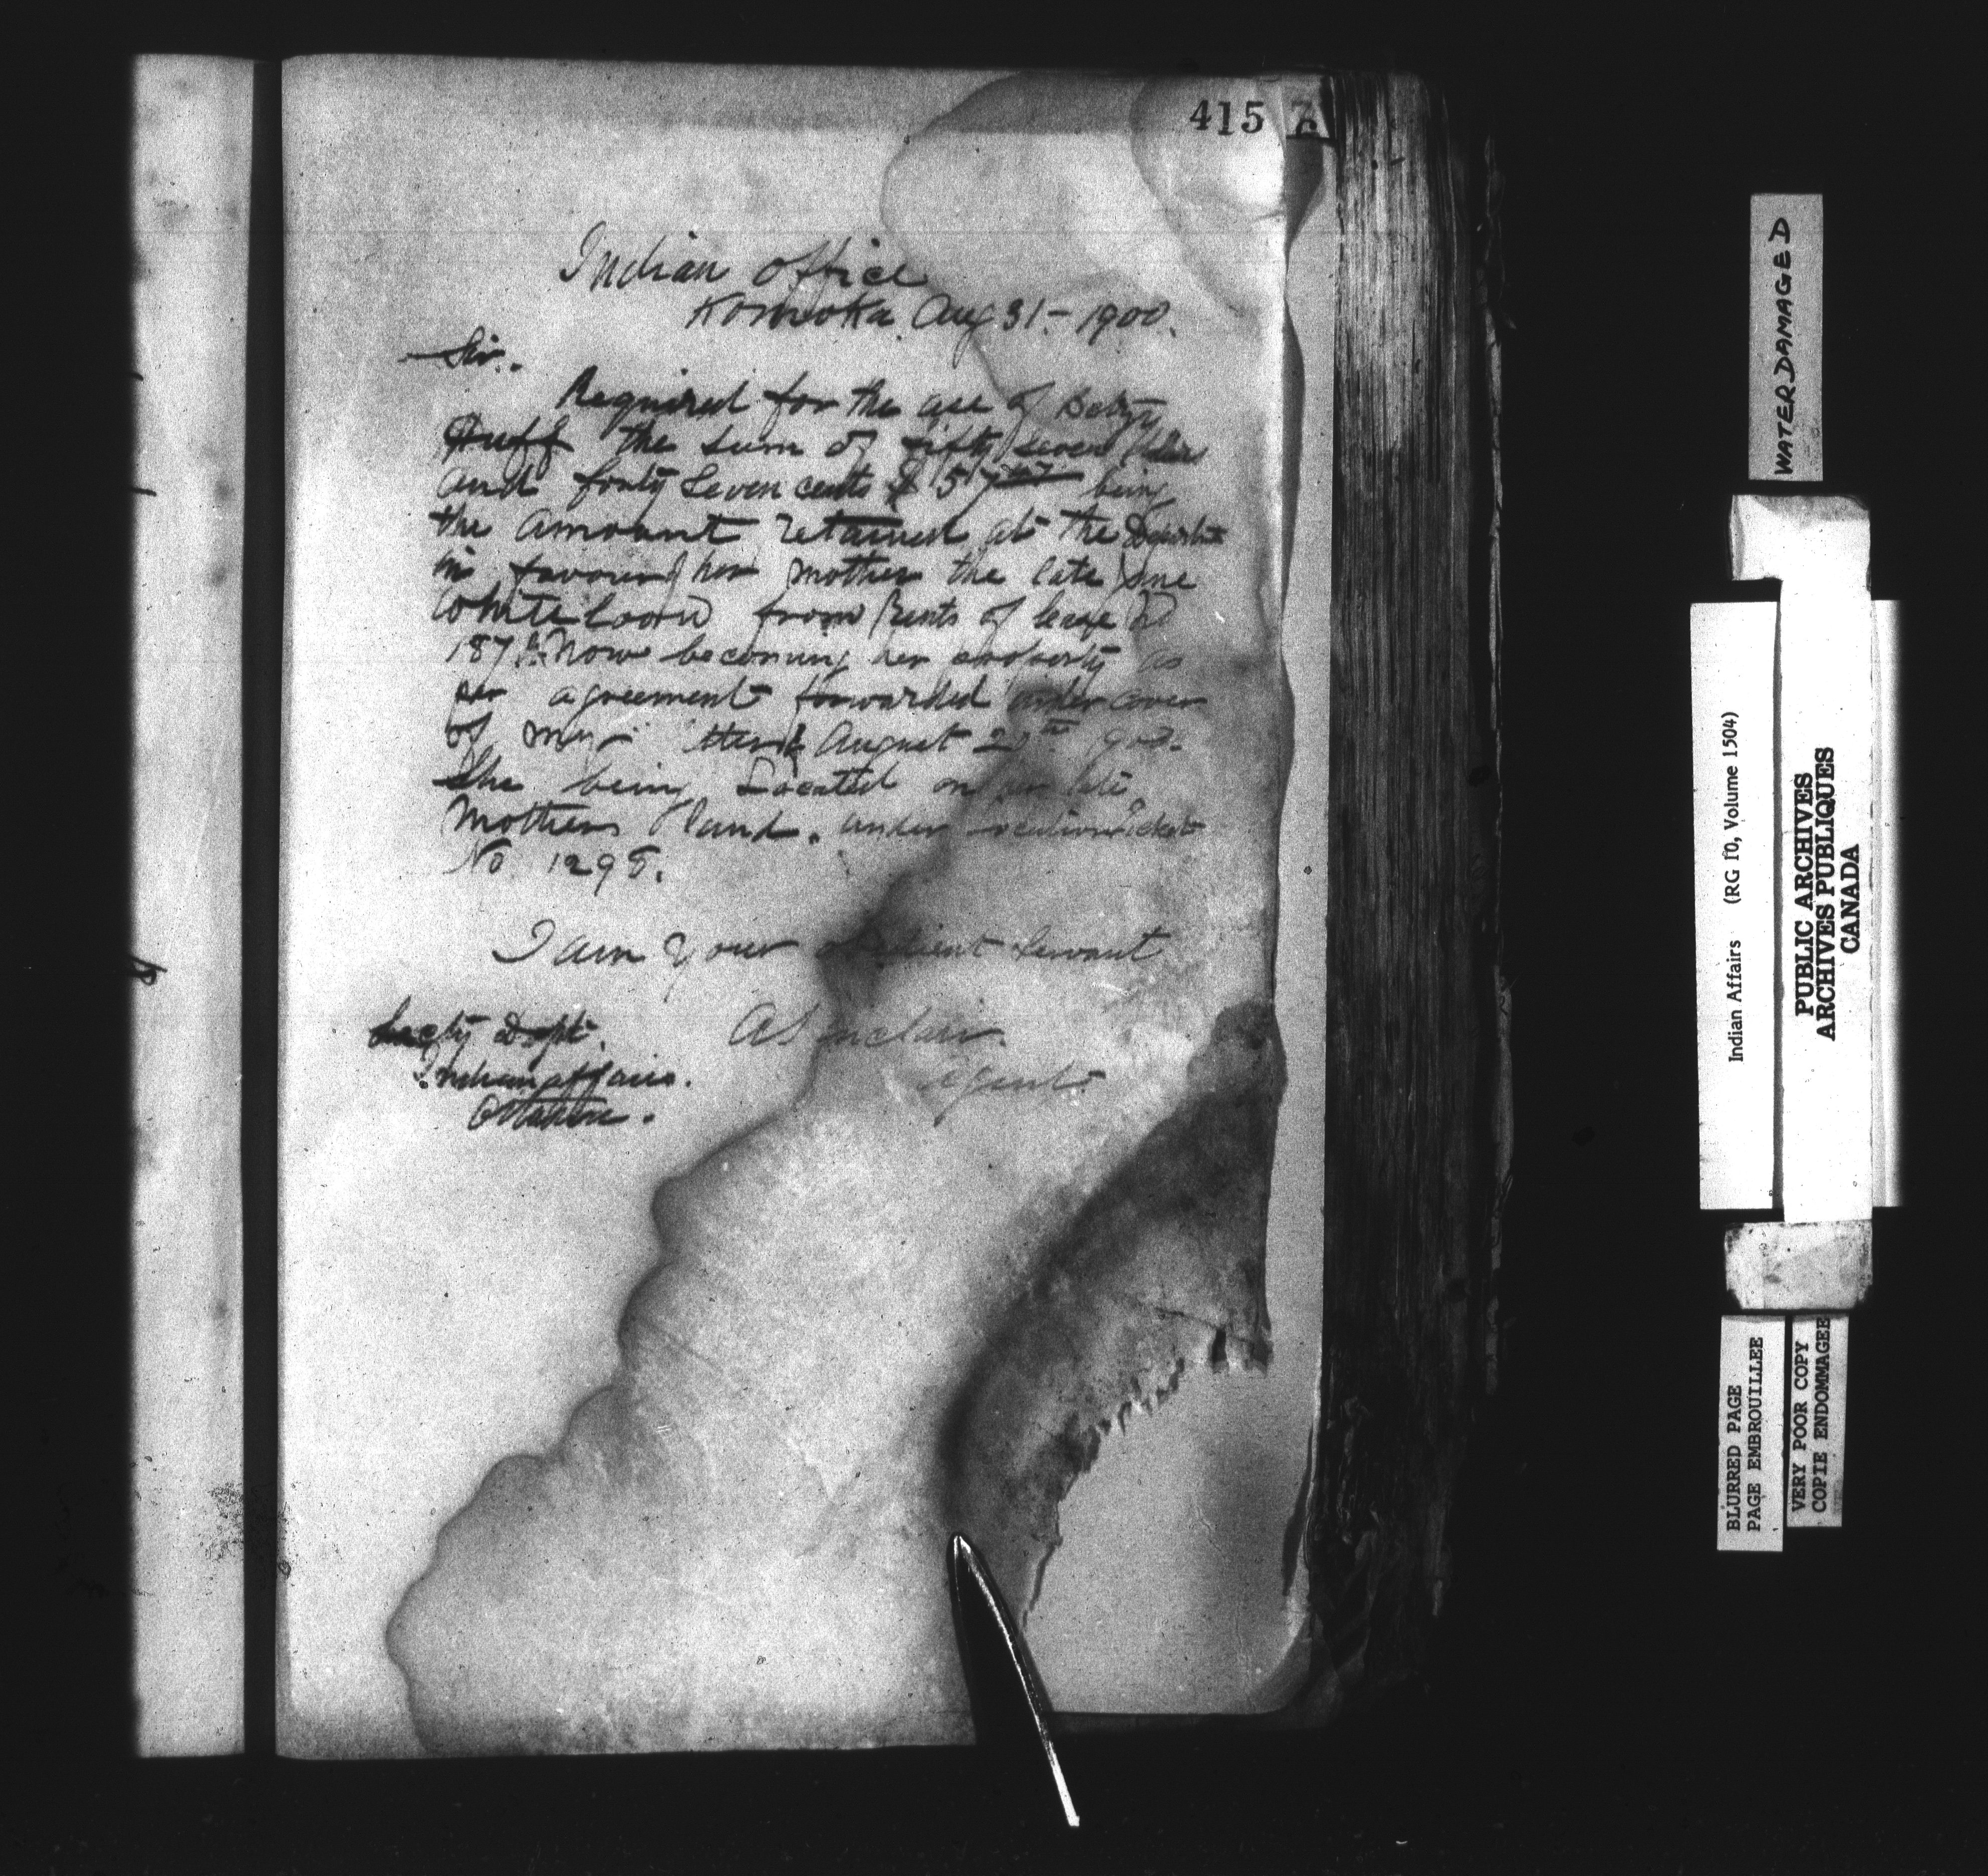 415
Indian office
Komoka. Aug 31.- 1900.
Sir.
Required for the use of Betsy
Huff the sum of fifty seven
and forty seven cents $57 47 being
the amount retained at the
in favour of her mother the late Jane
Whiteloon from Rents of lease
187 Now becoming her property as
per agreement forwarded under cover
of my August
She being Located on her late
Mothers land. under
No 1298.
I am your obedient servant
A Sinclair.
Agent
Secty Dept.
Indian affairs.
Ottawa.
WATER DAMAGED
Indian Affairs (RG 10, Volume 1504)
PUBLIC ARCHIVES
ARCHIVES PUBLIQUES
CANADA
BLURRED PAGE
PAGE EMBROUILLEE
VERY POOR COPY
COPIE ENDOMMAGEE